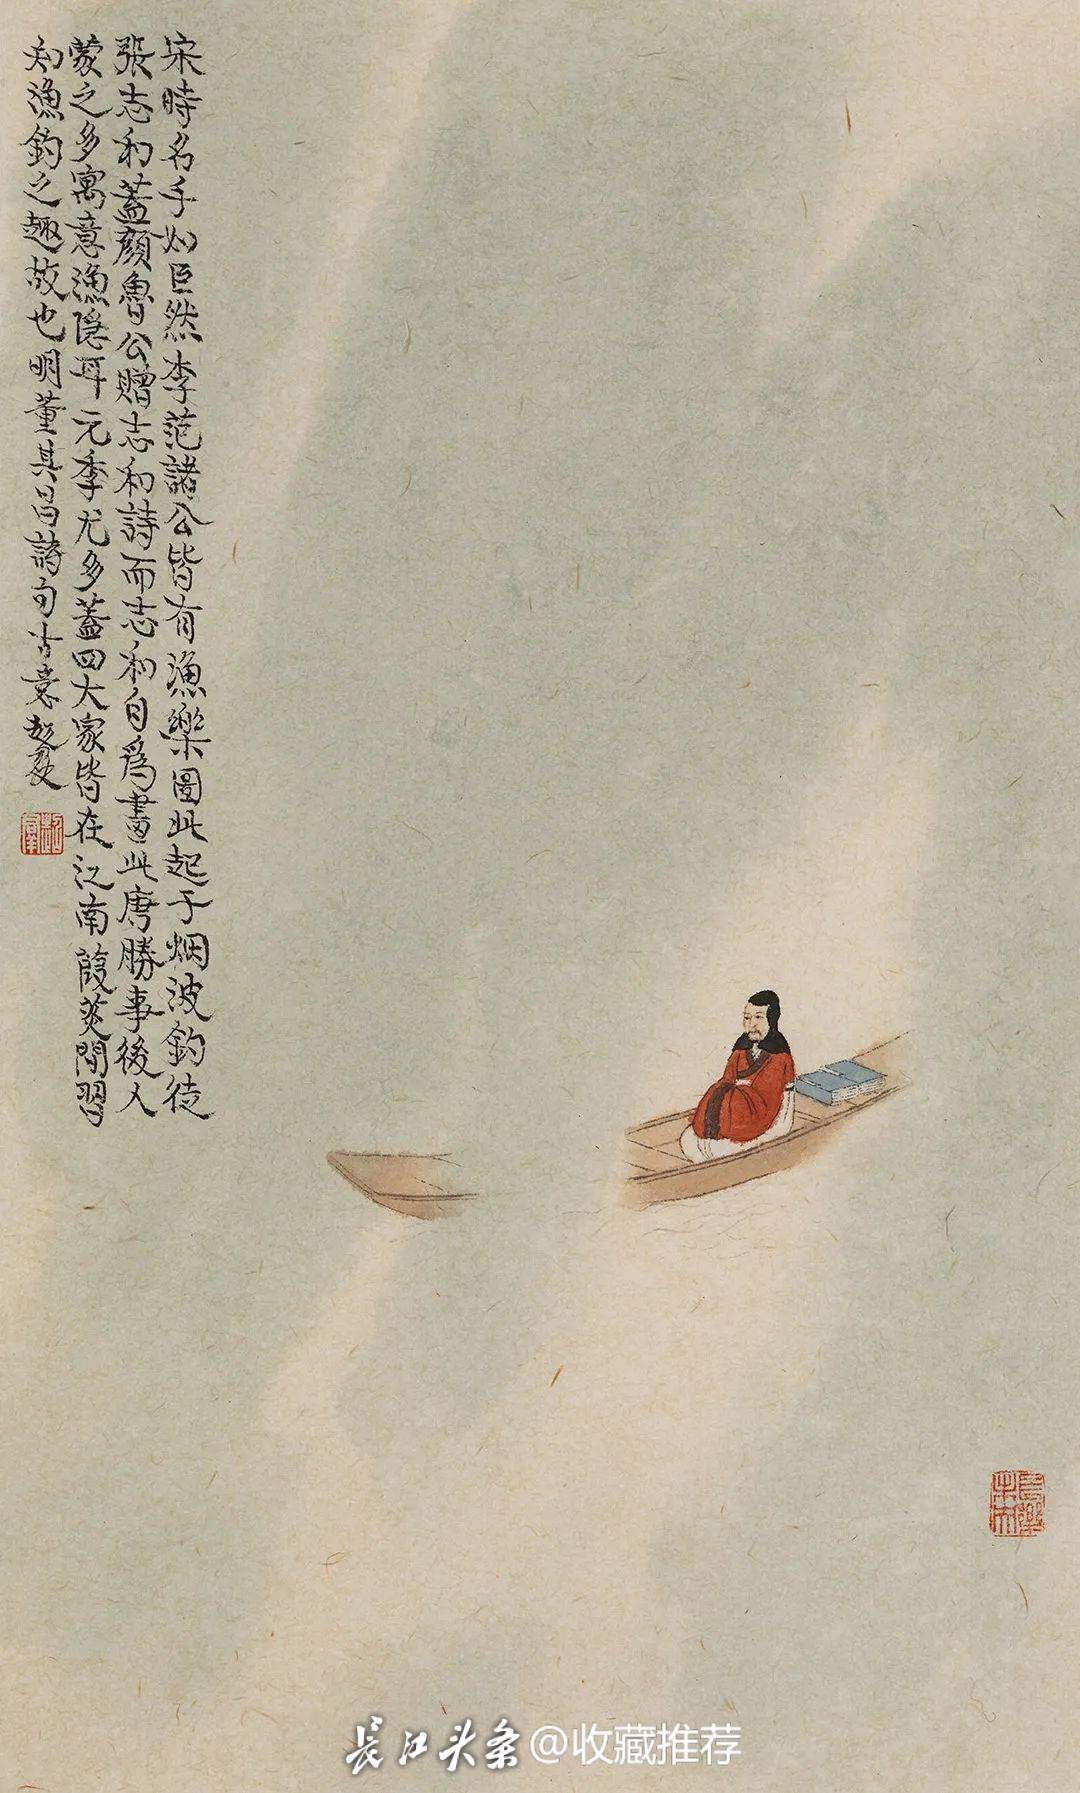 宋時名手如巨然李范諸公皆有漁樂圖此起于烟波釣徒
張志和蓋顏魯公贈志和詩而志和自爲畫此唐勝事後人
蒙之多寓意漁隱耳元季尤多蓋四大家皆在江南葭菼間習
知漁釣之趣故也明董其昌詩句古意
长江头条@收藏推荐